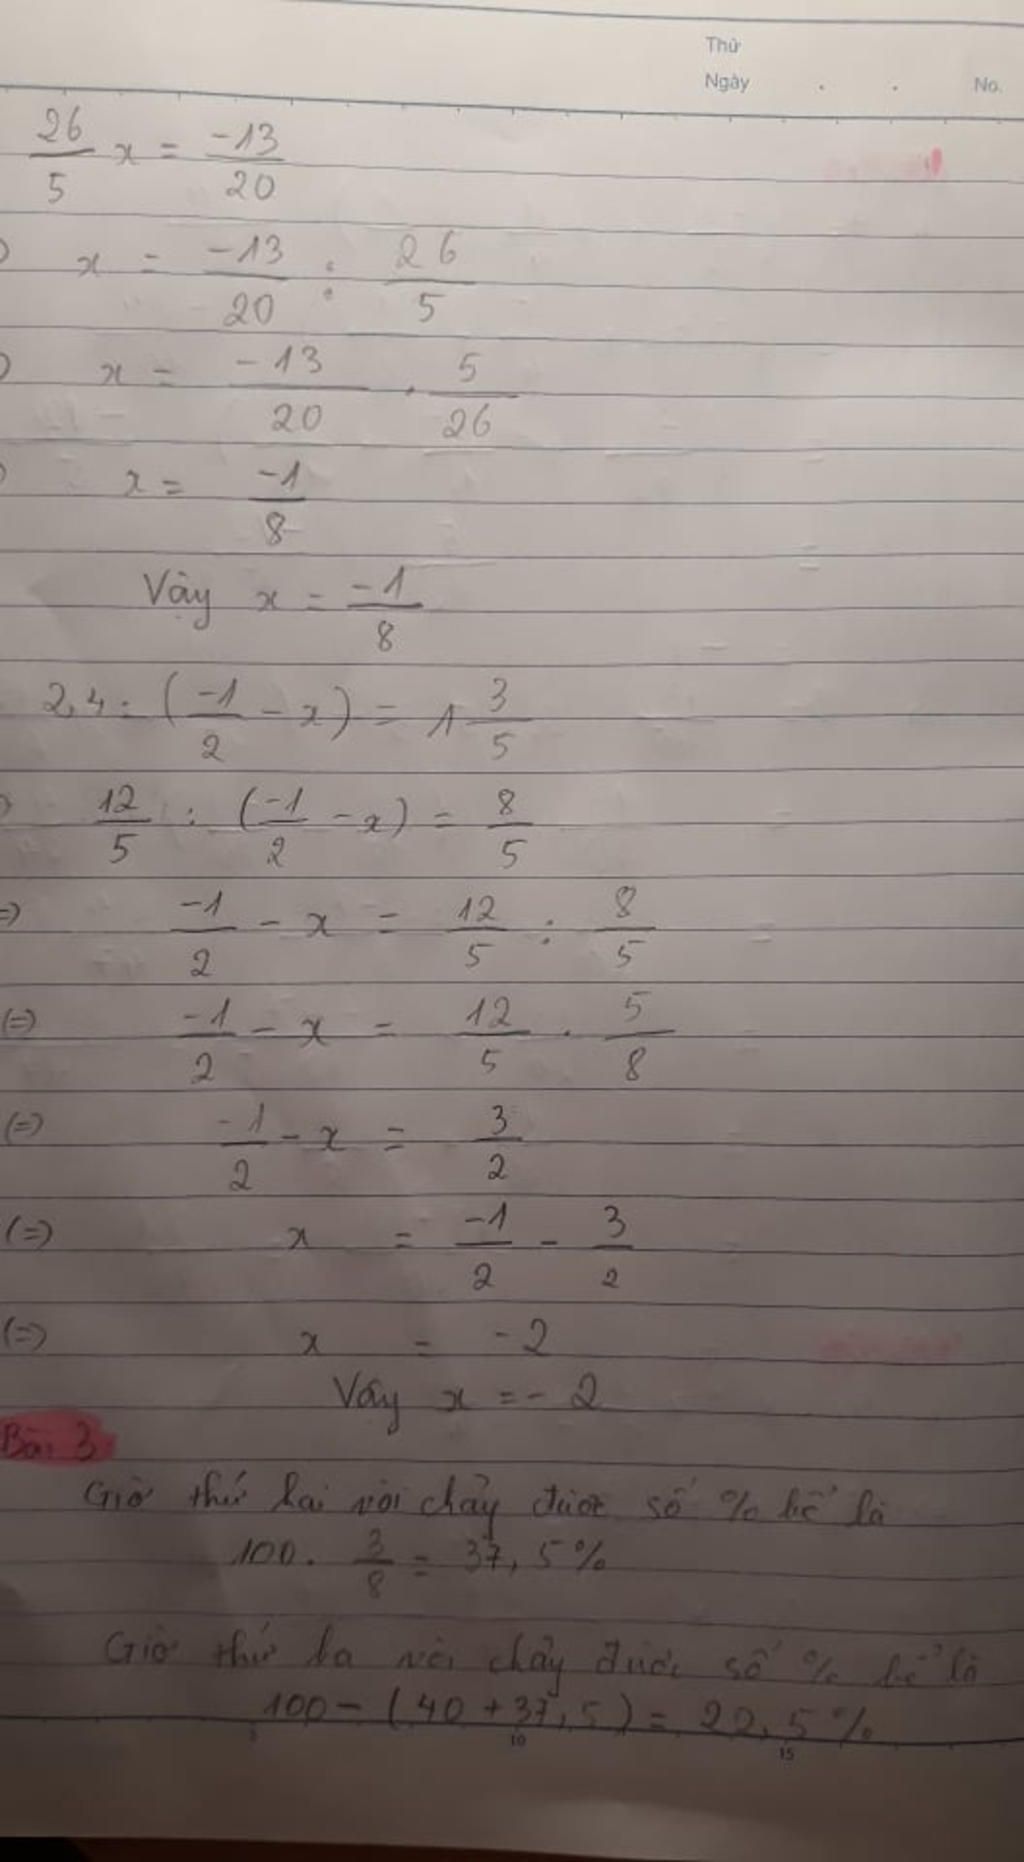 Thứ
Ngày . . No.
26/5 x = -13/20
x = -13/20 : 26/5
x = -13/20 . 5/26
x = -1/8
Vậy x = -1/8
2,4 : (-1/2 - x) = 1 3/5
12/5 : (-1/2 - x) = 8/5
=) -1/2 - x = 12/5 : 8/5
(=) -1/2 - x = 12/5 . 5/8
(=) -1/2 - x = 3/2
(=) x = -1/2 - 3/2
(=) x = -2
Vậy x = -2
Bài 3
Giờ thứ hai vòi chảy được số % bể là
100 . 3/8 = 37,5%
Giờ thứ ba vòi chảy được số % bể là
100 - (40 + 37,5) = 22,5%
5 10 15